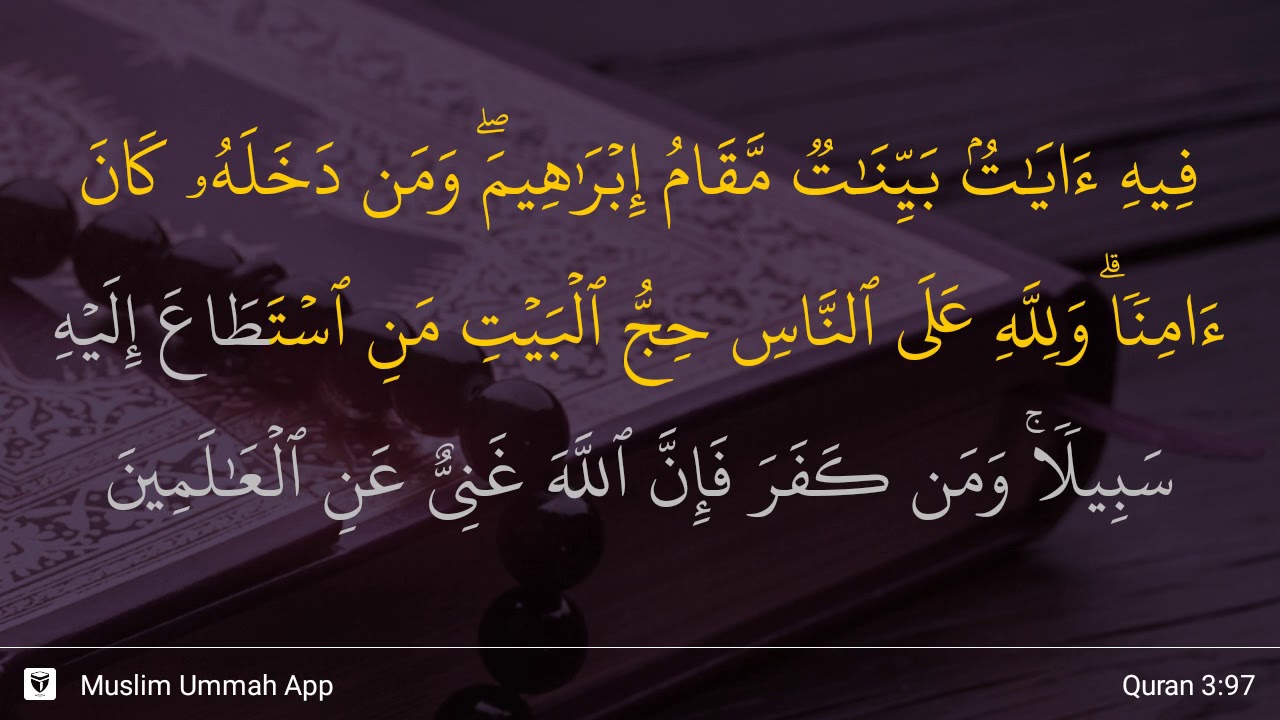 فِيهِ ءَايَـٰتُۢ بَيِّنَـٰتٌ مَّقَامُ إِبْرَٰهِيمَ ۖ وَمَن دَخَلَهُۥ كَانَ
ءَامِنًا ۗ وَلِلَّهِ عَلَى ٱلنَّاسِ حِجُّ ٱلْبَيْتِ مَنِ ٱسْتَطَاعَ إِلَيْهِ
سَبِيلًا ۚ وَمَن كَفَرَ فَإِنَّ ٱللَّهَ غَنِىٌّ عَنِ ٱلْعَـٰلَمِينَ
Muslim Ummah App
Quran 3:97